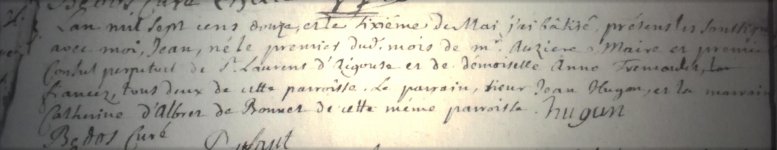 Bedos Curé
Lan mil sept cens douze, et le sixiéme de Mai j'ai bâtisé, présens les soussignés
avec moi, Jean, né le premier dud. mois de mr. Auziere Maire et premier
Consul perpetuel de St. Laurens d'Aigouse et de demoiselle Anne
tous deux de cette parroisse. Le parrain, sieur Jean Hugon, et la marraine
Catherine d'Albres de Bonnet de cette même parroisse. hugun
Bedos Curé